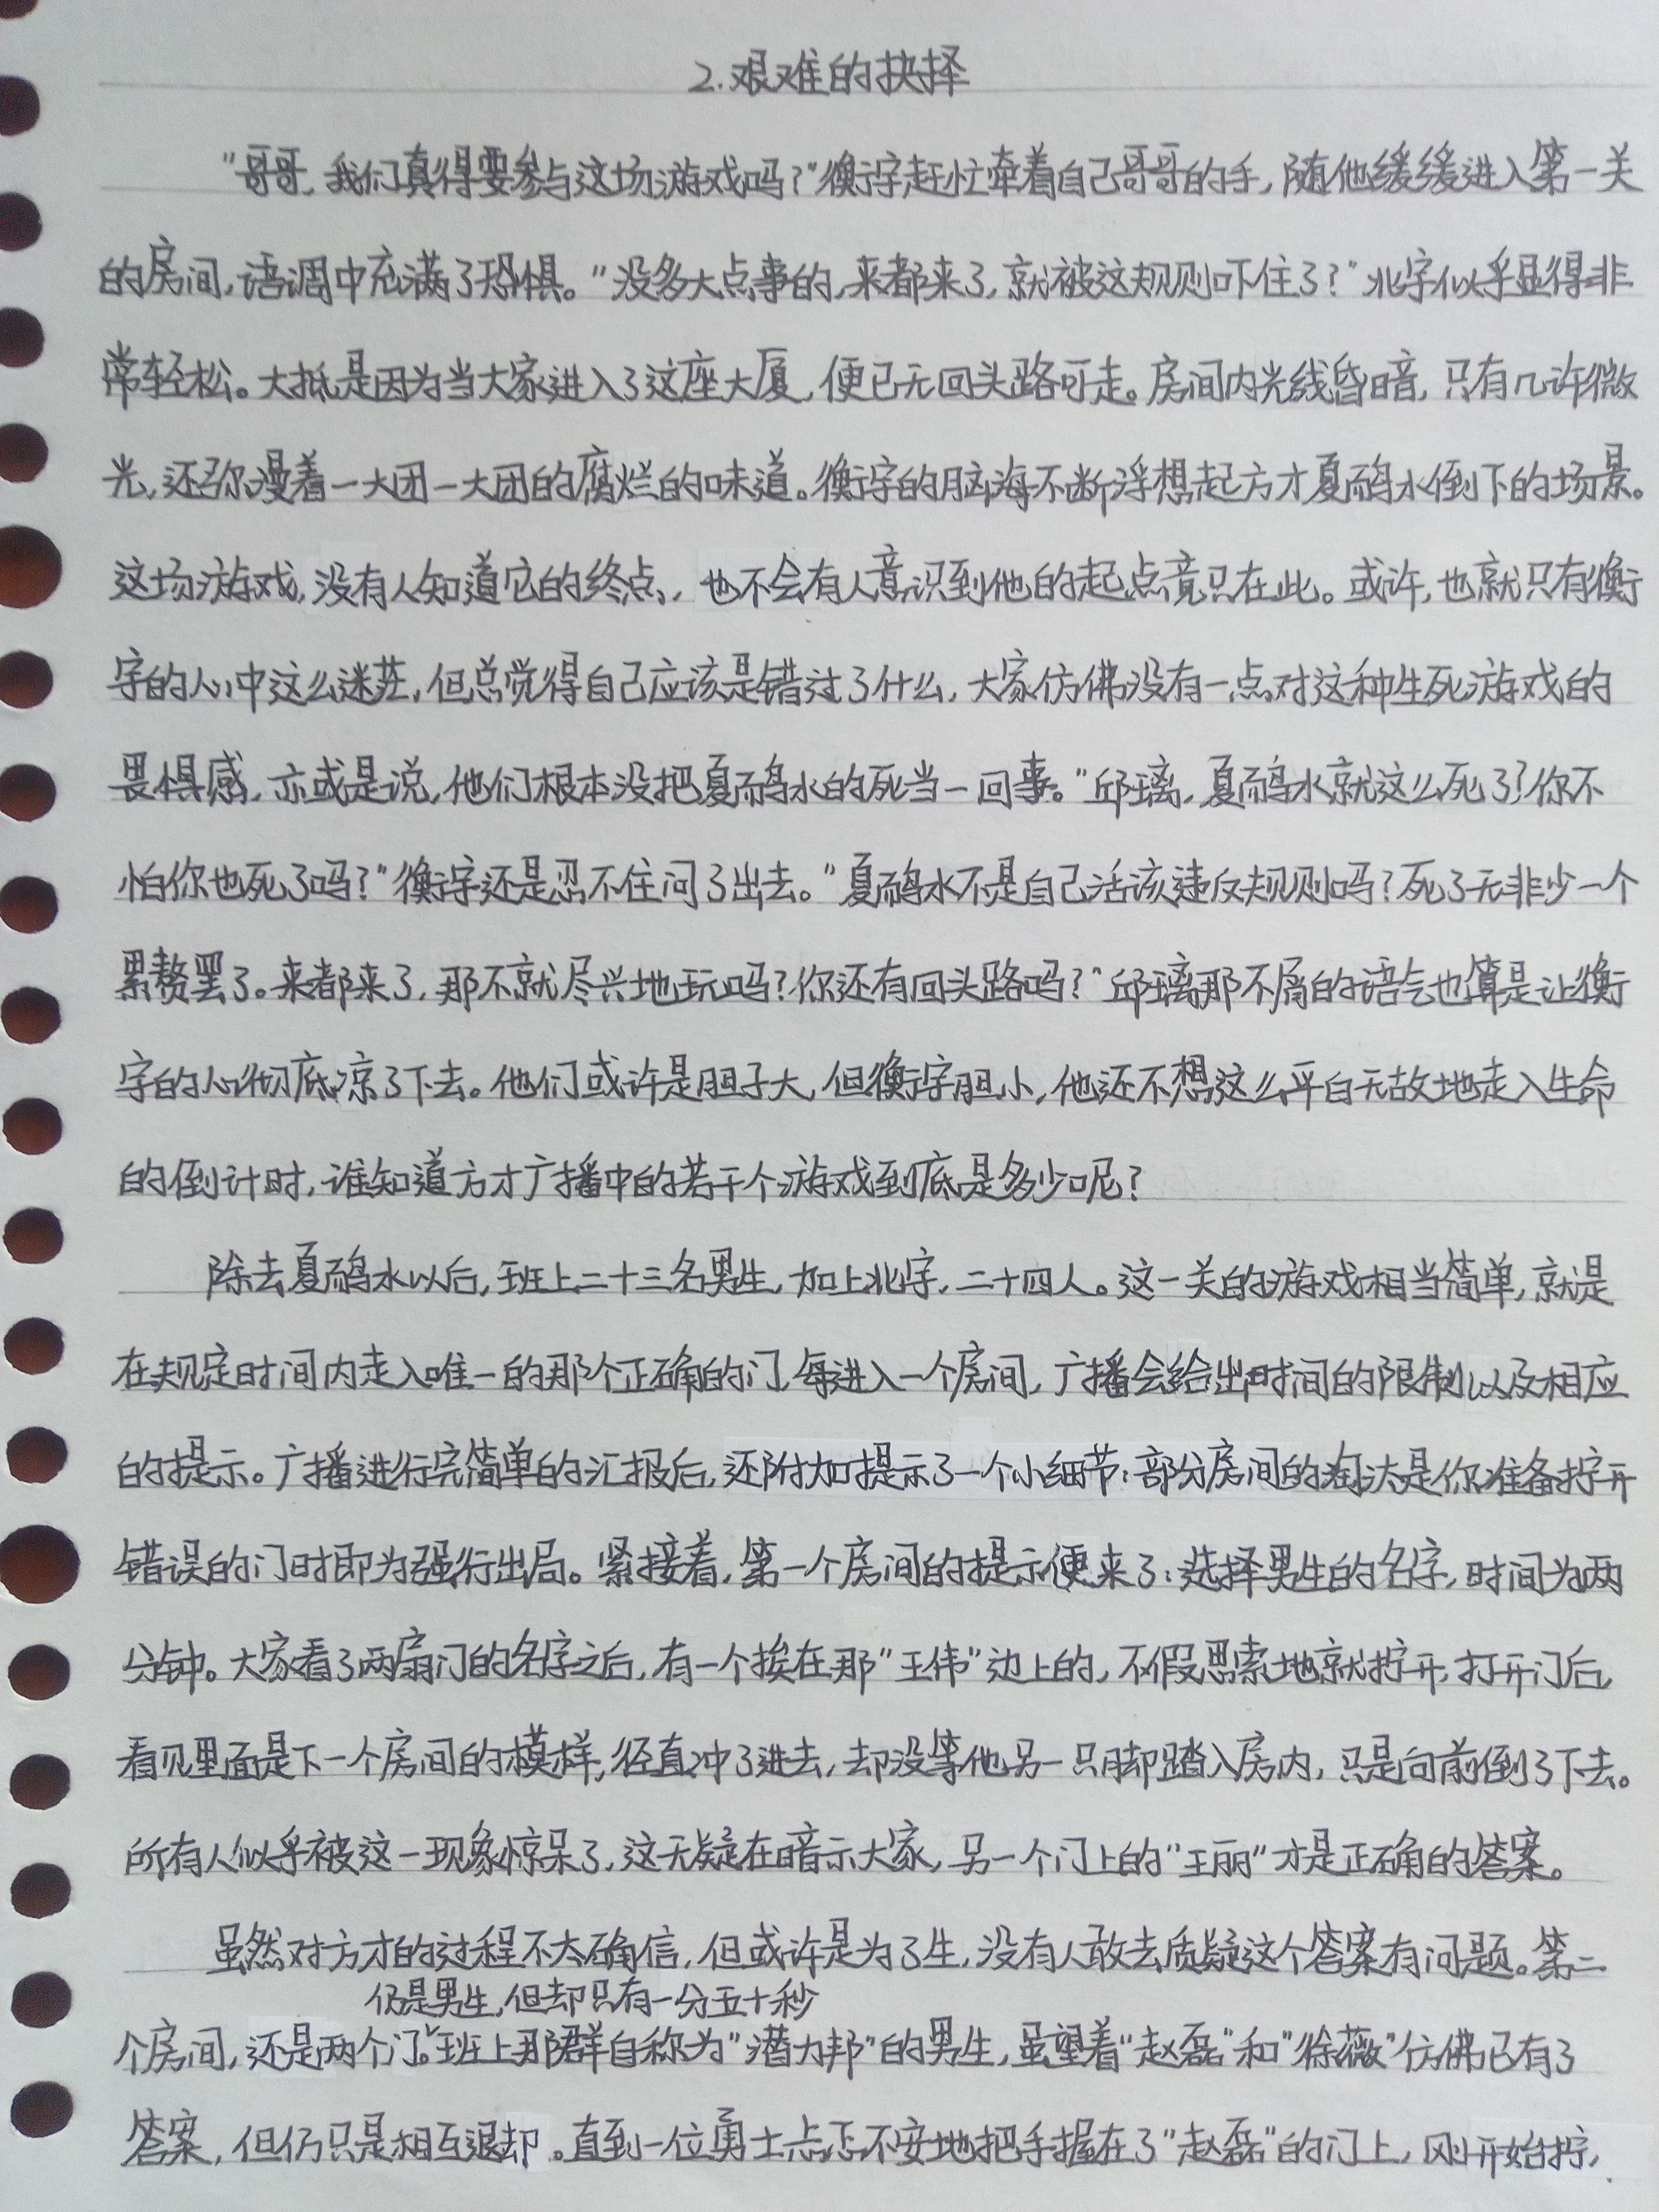 2.艰难的抉择
“哥哥,我们真得要参与这场游戏吗?”衡字赶忙牵着自己哥哥的手,随他缓缓进入第一关
的房间,语调中充满了恐惧。“没多大点事的,来都来了,就被这规则吓住了?”北字似乎显得非
常轻松。大抵是因为当大家进入了这座大厦,便已无回头路可走。房间内光线昏暗,只有几许微
光,还弥漫着一大团一大团的腐烂的味道。衡字的脑海不断浮想起方才夏雨鸣水倒下的场景。
这场游戏,没有人知道它的终点,也不会有人意识到他的起点竟只在此。或许,也就只有衡
字的心中这么迷茫,但总觉得自己应该是错过了什么,大家仿佛没有一点对这种生死游戏的
畏惧感,亦或是说,他们根本没把夏雨鸣水的死当一回事。“邱璃,夏雨鸣水就这么死了?你不
怕你也死了吗?”衡字还是忍不住问了出去。“夏雨鸣水不是自己活该违反规则吗?死了无非少一个
累赘罢了。来都来了,那不就尽兴地玩吗?你还有回头路吗?”邱璃那不屑的语气也算是让衡
字的心彻底凉了下去。他们或许是胆子大,但衡字胆小,他还不想这么平白无故地走入生命
的倒计时,谁知道方才广播中的若干个游戏到底是多少呢?
除去夏雨鸣水以后,班上二十三名男生,加上北字,二十四人。这一关的游戏相当简单,就是
在规定时间内走入唯一的那个正确的门,每进入一个房间,广播会给出时间的限制以及相应
的提示。广播进行完简单的汇报后,还附加提示了一个小细节:部分房间的淘汰是你准备拧开
错误的门时即为强行出局。紧接着,第一个房间的提示便来了:选择男生的名字,时间为两
分钟。大家看了两扇门的名字之后,有一个挨在那“王伟”边上的,不假思索地就拧开,打开门后,
看见里面是下一个房间的模样,径直冲了进去,却没等他另一只脚踏入房内,只是向前倒了下去。
所有人似乎被这一现象惊呆了,这无疑在暗示大家,另一个门上的“王丽”才是正确的答案。
虽然对方才的过程不太确信,但或许是为了生,没有人敢去质疑这个答案有问题。第二
仍是男生,但却只有一分五十秒
个房间,还是两个门。班上那群自称为“潜力邦”的男生,虽望着“赵磊”和“徐薇”仿佛已有了
答案,但仍只是相互退却。直到一位勇士忐忑不安地把手握在了“赵磊”的门上,刚开始拧,